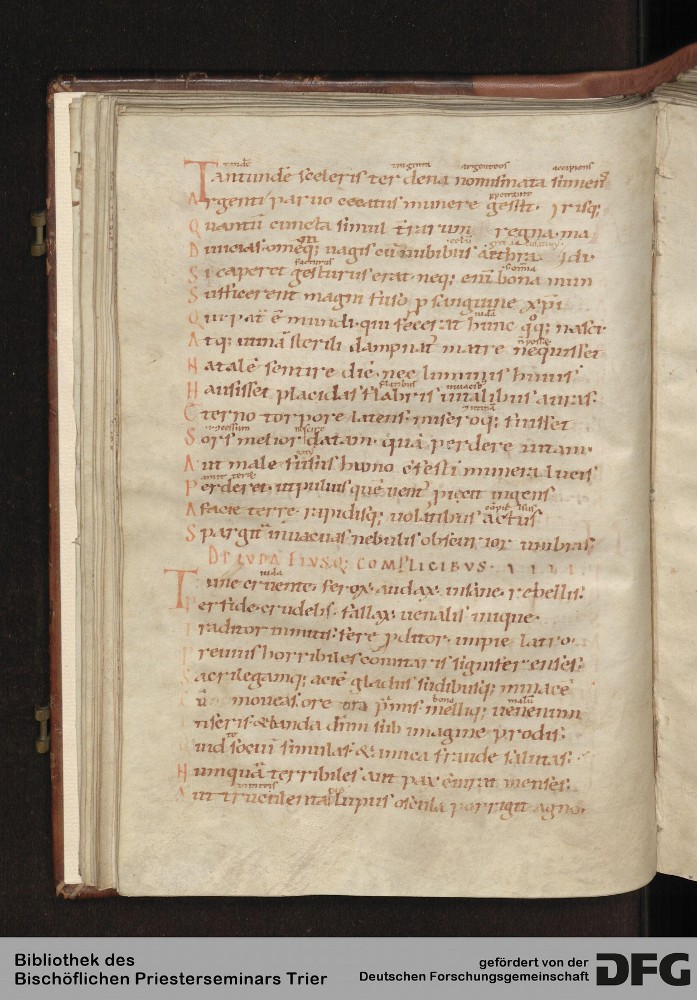 Tantunde sceleris ter dena nomismata sumens
Argenti paruo cecatus munere gessit.
Quantū cuncta simul regna
Diuicias. uagis cū nubibus
Si caperet gesturus erat. neq; enī bona
Sufficerent magni fuso ꝓ sanguine xp̄i
Qui mundi. qui fecerat hunc quoq; nasci.
Atq; utinā sterili dampnat matre nequisset
Natalē sentire diē. nec luminis huius
Hausisset placidas flabris uitalibus auras.
Eterno torpore latens. miseroq; fuisset
Sors melior datam. quā perdere uitam.
Aut male fusus humo celesti munera lucis
Perderet. ut puluis quē uent proicit ingens
A facie terre. rapidisq; uolatibus actus
Spargit in uacuas nebulis obscurior umbras.
DE IUDA EIUSQ; COMPLICIBUS. IIII.
Tune cruente. ferox. audax. insane. rebellis.
Perfide. crudelis. fallax. uenalis inique.
Traditor inmitis. fere ꝓditor. impie latro.
Preuius horribiles comitaris signifer enses.
Sacrilegamq; aciē gladiis sudibusq; minacē
moueas. ore ora p̄mis. melliq; uenenum
Inseris & blanda dn̄m sub imagine prodis.
Quid sociū simulas & amica fraude salutas.
Numquā terribiles aut pax ensses.
Aut truculenta lupus oscula porrigit agno.
Bibliothek des
Bischöflichen Priesterseminars Trier
gefördert von der
Deutschen Forschungsgemeinschaft
DFG